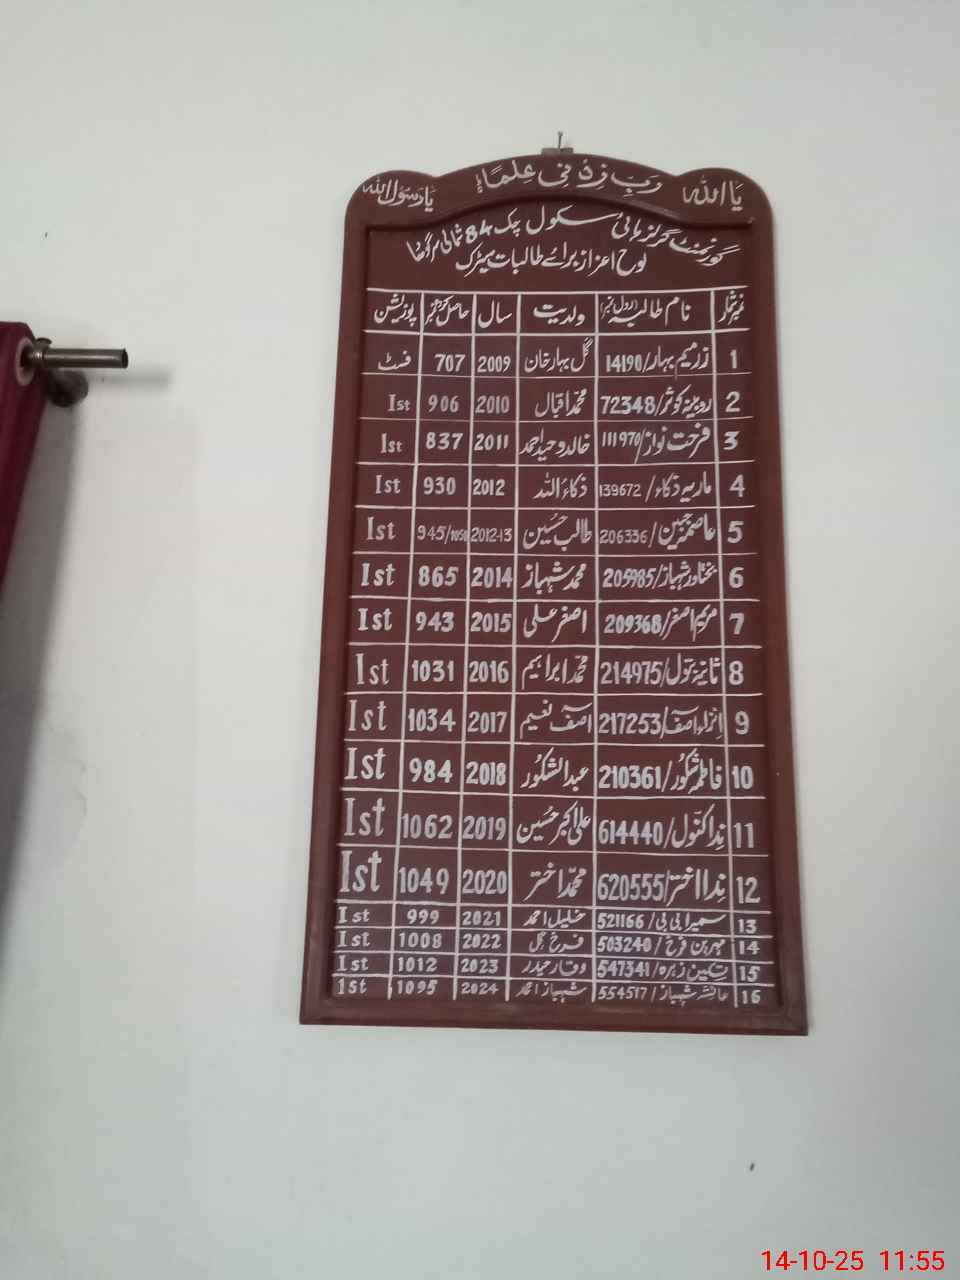 یا اللہ رَبِّ زِدْنِی عِلْمًا یا رسول اللہ
گورنمنٹ گرلز ہائی سکول چک 84 شمالی سرگودھا
لوح اعزاز برائے طالبات میٹرک
نمبر شمار نام طالبہ/رول نمبر ولدیت سال حاصل کردہ نمبر پوزیشن
1 زرمیم بہار/14190 گل بہار خان 2009 707 فسٹ
2 روبینہ کوثر/72348 محمد اقبال 2010 906 1st
3 فرحت نواز/111970 خالد وحید احمد 2011 837 1st
4 ماریہ ذکاء/139672 ذکاءُ اللہ 2012 930 1st
5 عاصمہ جبین/206336 طالب حُسین 2012-13 945/1050 1st
6 بختاور شہباز/205985 محمد شہباز 2014 865 1st
7 مریم اصغر/209368 اصغر علی 2015 943 1st
8 ثانیہ بتول/214975 محمد ابراہیم 2016 1031 1st
9 انزلہ آصف/217253 آصف نعیم 2017 1034 1st
10 فاطمہ شکور/210361 عبدالشکُور 2018 984 1st
11 نِدا کنول/614440 علی اکبر حُسین 2019 1062 1st
12 نِدا اختر/620555 محمد اختر 2020 1049 1st
13 سمیرا بی بی/521166 خلیل احمد 2021 999 1st
14 مہرین فرخ/503240 فرخ گل 2022 1008 1st
15 تسکین زہرہ/547341 وقار حیدر 2023 1012 1st
16 عائشہ شہباز/554517 شہباز احمد 2024 1095 1st
14-10-25 11:55